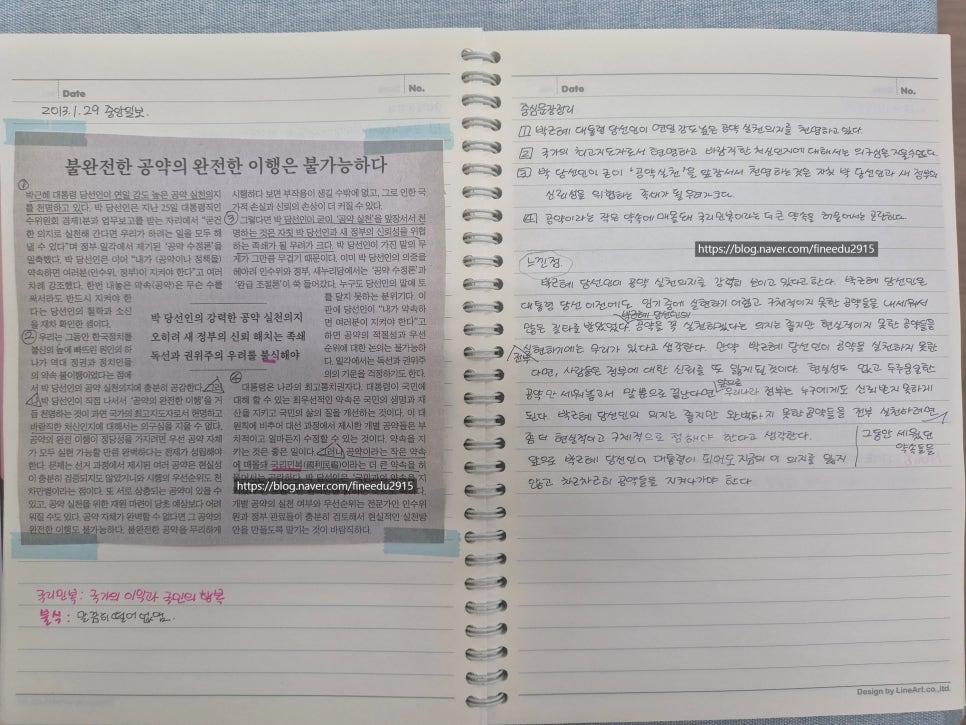 Date No.
2013.1.29 중앙일보.
불완전한 공약의 완전한 이행은 불가능하다
①
박근혜 대통령 당선인이 연일 강도 높은 공약 실천의지
를 천명하고 있다. 박 당선인은 지난 25일 대통령직인
수위원회 경제1분과 업무보고를 받는 자리에서 “굳건
한 의지로 실천해 간다면 우리가 하려는 일을 모두 해
낼 수 있다”며 정부 일각에서 제기된 ‘공약 수정론’을
일축했다. 박 당선인은 이어 “내가 (공약이나 정책을)
약속하면 여러분(인수위, 정부)이 지켜야 한다”고 여러
차례 강조했다. 한번 내놓은 약속(공약)은 무슨 수를
써서라도 반드시 지켜야 한
다는 당선인의 철학과 소신
을 재차 확인한 셈이다.
② 우리는 그동안 한국정치를
불신의 늪에 빠뜨린 원인의 하
나가 역대 정권과 정치인들
의 약속 불이행이었다는 점에
서 박 당선인의 공약 실천의지에 충분히 공감한다. 그러
나 박 당선인이 직접 나서서 ‘공약의 완전한 이행’을 거
듭 천명하는 것이 과연 국가의 최고지도자로서 현명하고
바람직한 처신인지에 대해서는 의구심을 지울 수 없다.
공약의 완전 이행이 정당성을 가지려면 우선 공약 자체
가 모두 실현 가능할 만큼 완벽하다는 전제가 성립해야
한다. 문제는 선거 과정에서 제시된 여러 공약은 현실성
이 충분히 검증되지도 않았거니와 시행의 우선순위도 천
차만별이라는 점이다. 또 서로 상충되는 공약이 있을 수
있고, 공약 실천을 위한 재원 마련이 당초 예상보다 어려
워질 수도 있다. 공약 자체가 완벽할 수 없다면 그 공약의
완전한 이행도 불가능하다. 불완전한 공약을 무리하게
시행하다 보면 부작용이 생길 수밖에 없고, 그로 인한 국
가적 손실과 신뢰의 손상이 더 커질 수 있다.
③ 그렇다면 박 당선인이 굳이 ‘공약 실천’을 앞장서서 천
명하는 것은 자칫 박 당선인과 새 정부의 신뢰성을 위협
하는 족쇄가 될 우려가 크다. 박 당선인이 가진 말의 무
게가 그만큼 무겁기 때문이다. 이미 박 당선인의 의중을
헤아려 인수위와 정부, 새누리당에서는 ‘공약 수정론’과
‘완급 조절론’이 쑥 들어갔다. 누구도 당선인의 말에 토
를 달지 못하는 분위기다. 이
판에 당선인이 “내가 약속하
면 여러분이 지켜야 한다”고
하면 공약의 적절성과 우선
순위에 대한 논의는 불가능하
다. 일각에서는 독선과 권위주
의의 기운을 걱정하기도 한다.
박 당선인의 강력한 공약 실천의지
오히려 새 정부의 신뢰 해치는 족쇄
독선과 권위주의 우려를 불식해야
④ 대통령은 나라의 최고통치권자다. 대통령이 국민에
대해 할 수 있는 최우선적인 약속은 국민의 생명과 재
산을 지키고 국민의 삶의 질을 개선하는 것이다. 이 대
원칙에 비추어 대선 과정에서 제시한 개별 공약들은 부
차적이고 얼마든지 수정할 수 있는 것이다. 약속을 지
키는 것은 좋은 일이다. 그러나 공약이라는 작은 약속
에 매몰돼 국리민복(國利民福)이라는 더 큰 약속을 허
https://blog.naver.com/fineedu2915
개별 공약의 실천 여부와 우선순위는 전문가인 인수위
원과 정부 관료들이 충분히 검토해서 현실적인 실천방
안을 만들도록 맡기는 것이 바람직하다.
국리민복: 국가의 이익과 국민의 행복
불식: 말끔히 떨어 없앰.
Date No.
중심문장정리
1 박근혜 대통령 당선인이 연일 강도 높은 공약 실천의지를 천명하고 있다.
2 국가의 최고지도자로서 현명하고 바람직한 처신인지에 대해서는 의구심을 지울수없다.
3 박 당선인이 굳이 '공약실천'을 앞장서서 천명하는 것은 자칫 박 당선인과 새 정부의
신뢰성을 위협하는 족쇄가 될 우려가 크다.
4 공약이라는 작은 약속에 매몰돼 국리민복이라는 더 큰 약속을 허물어서는 곤란하다.
https://blog.naver.com/fineedu2915
느낀점.
박근혜 당선인이 공약 실천의지를 강력히 보이고 있다고 한다. 박근혜 당선인은
대통령 당선 이전에도 임기 중에 실현하기 어렵고 구체적이지 못한 공약들을 내세워서
많은 질타를 받았었다. 박근혜 당선인의 공약을 꼭 실천하겠다는 의지는 좋지만 현실적이지 못한 공약들을
전부 실현하기에는 무리가 있다고 생각한다. 만약 박근혜 당선인이 공약을 실천하지 못한
다면, 사람들은 정부에 대한 신뢰를 또 잃게 될 것이다. 현실성도 없고 두루뭉술한
공약만 세워놓고서 말뿐으로 끝난다면 앞으로 우리나라 정부는 누구에게도 신뢰 받지 못하게
된다. 박근혜 당선인의 의지는 좋지만 완벽하지 못한 공약들을 전부 실천하려면
그동안 세웠던 약속들을
좀 더 현실적이고 구체적으로 정해야 한다고 생각한다.
앞으로 박근혜 당선인이 대통령이 되어도 지금의 이 의지를 잃지
않고 차근차근히 공약들을 지켜나가야 한다.
Design by LineArt.co.,ltd.